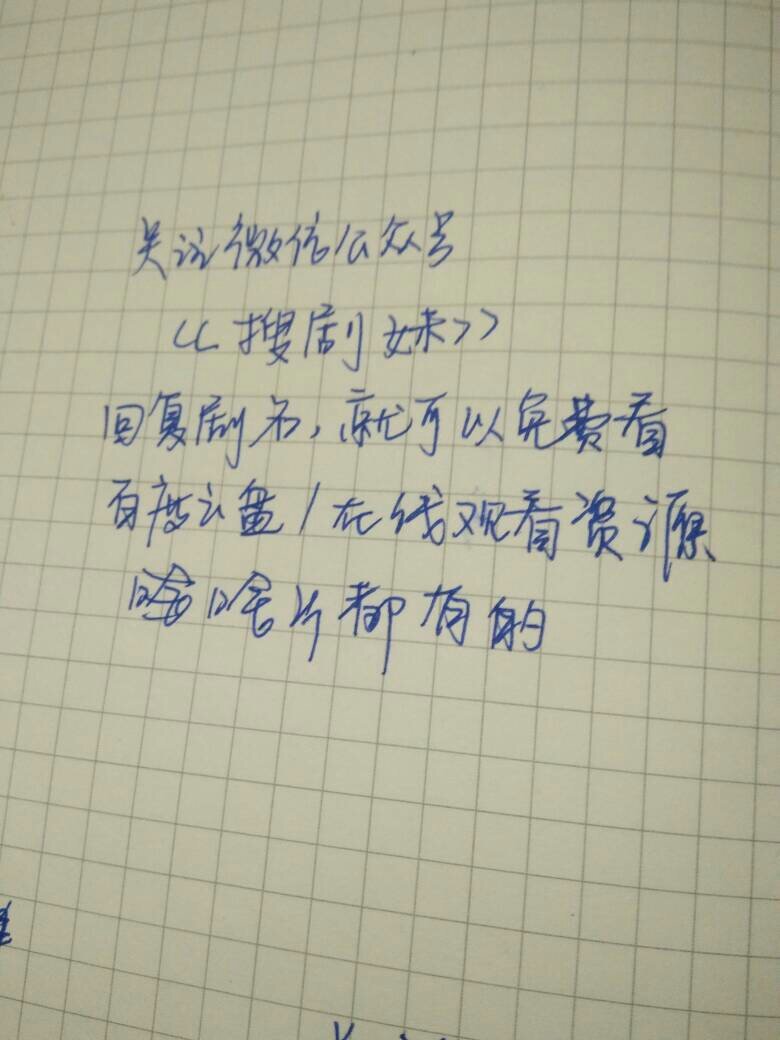 关注微信公众号
<<搜剧妹>>
回复剧名,就可以免费看
百度云盘/在线观看资源
啥啥片都有的